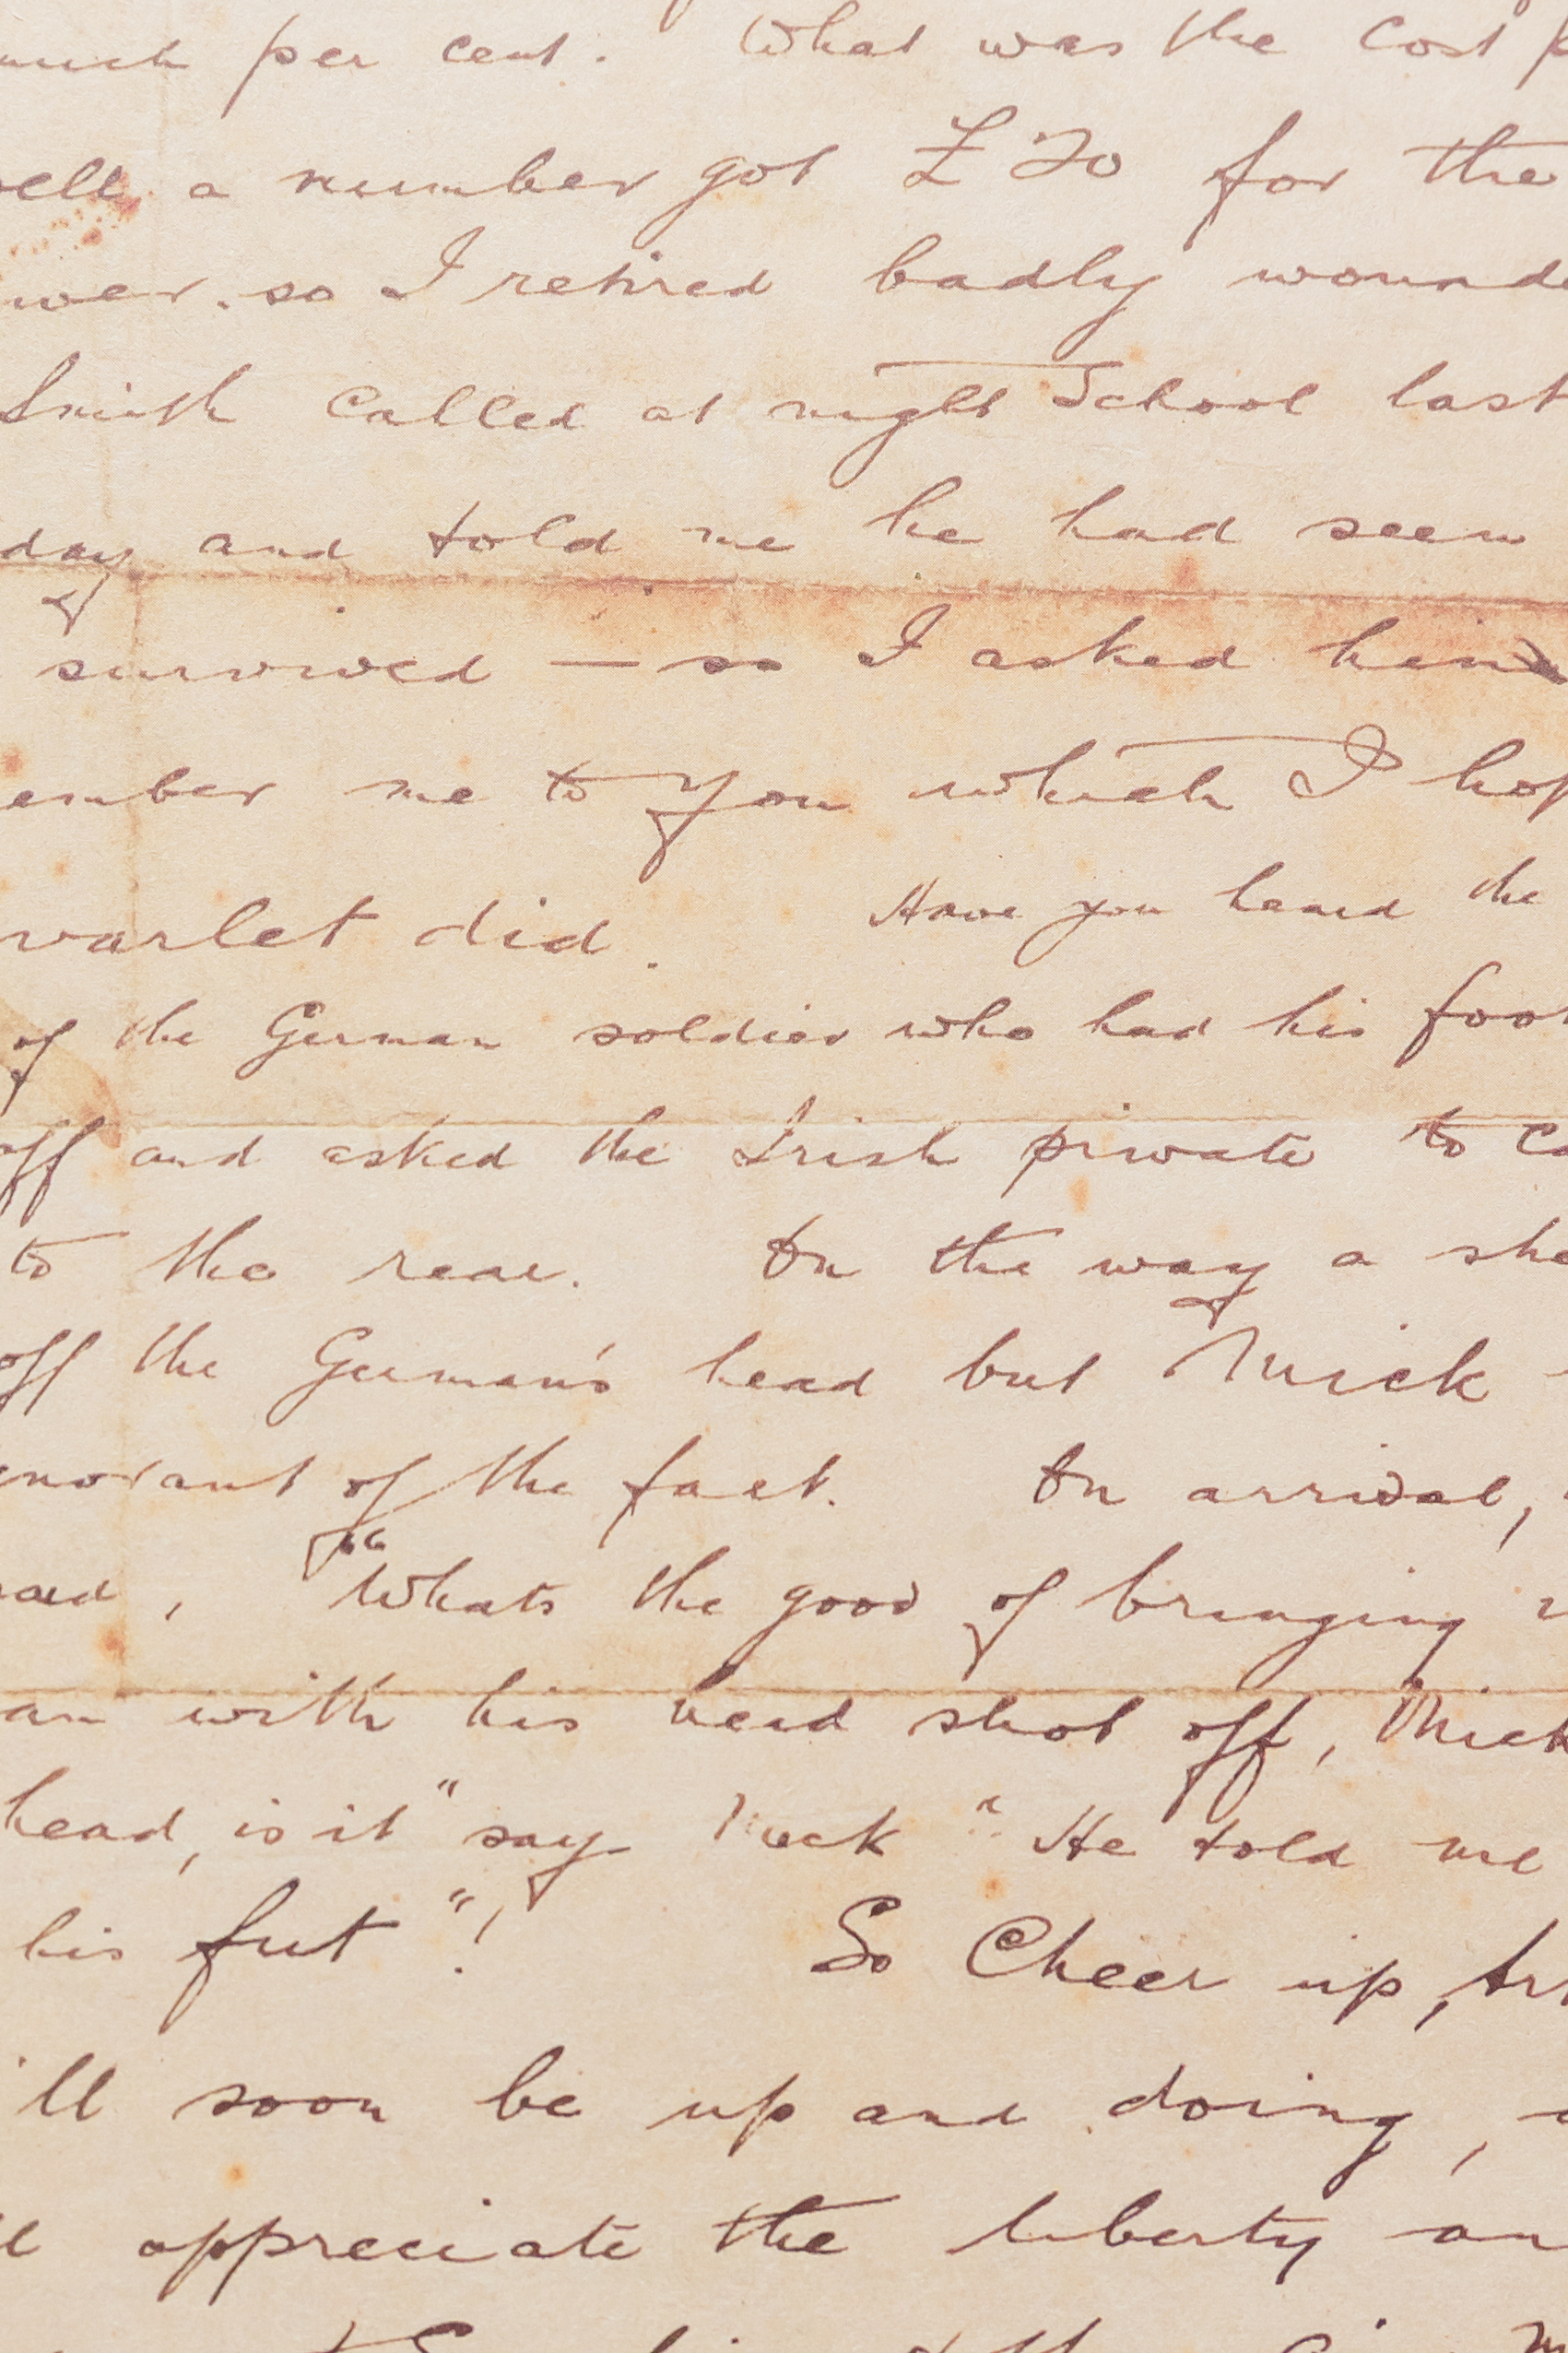 much per cent. What was the cost p
well a number got £20 for the
wer. so I retired badly wounde
Smith called at night School last
day and told me he had seen
survived — so I asked him
ember me to you which I hop
varlet did. Have you heard the
of the German soldier who had his foot
off and asked the Irish private to ca
to the rear. On the way a she
off the German's head but Mick
norant of the fact. On arrival,
"Whats the good of bringing
an with his head shot off, Mick
head, is it" say Mick "He told me
his fut"!
So Cheer up, Art
'll soon be up and doing,
appreciate the liberty an